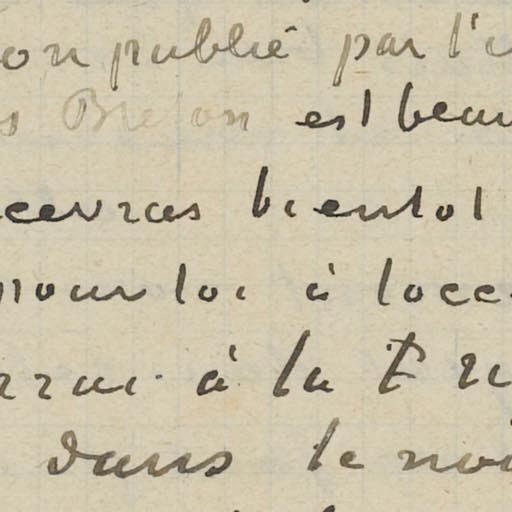 on publié par l'u
s Breton est beau
cevras bientot
pour toi à locc
rrai à la
dans le noi